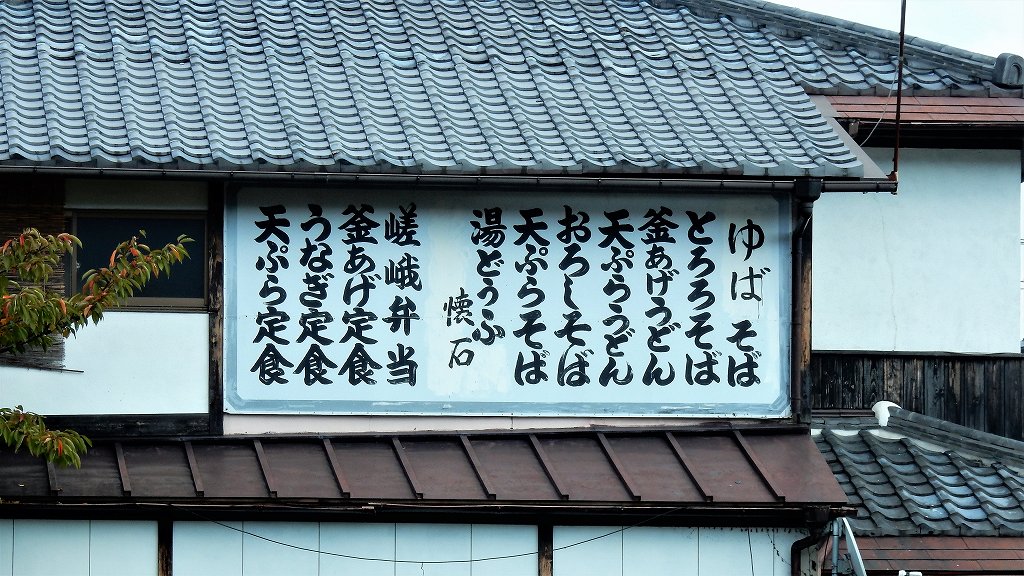 ゆば そば
とろろそば
釜あげうどん
天ぷらうどん
おろしそば
天ぷらそば
湯どうふ
懐石
嵯峨弁当
釜あげ定食
うなぎ定食
天ぷら定食